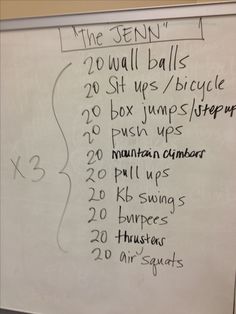 "The JENN"
20 wall balls
20 Sit ups/bicycle
20 box jumps/step up
20 push ups
20 mountain climbers
20 pull ups
20 Kb swings
20 burpees
20 thrusters
20 air squats
x3